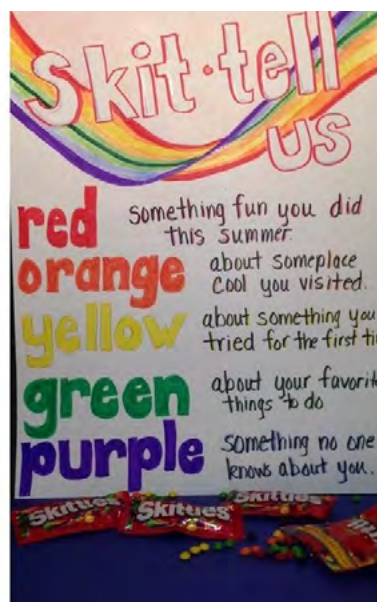 Skit·tell
us
red something fun you did
this summer.
orange about someplace
cool you visited.
yellow about something you
tried for the first
green about your favorite
things to do
purple something no one
knows about you.
Skittles
Skittles
Skittles